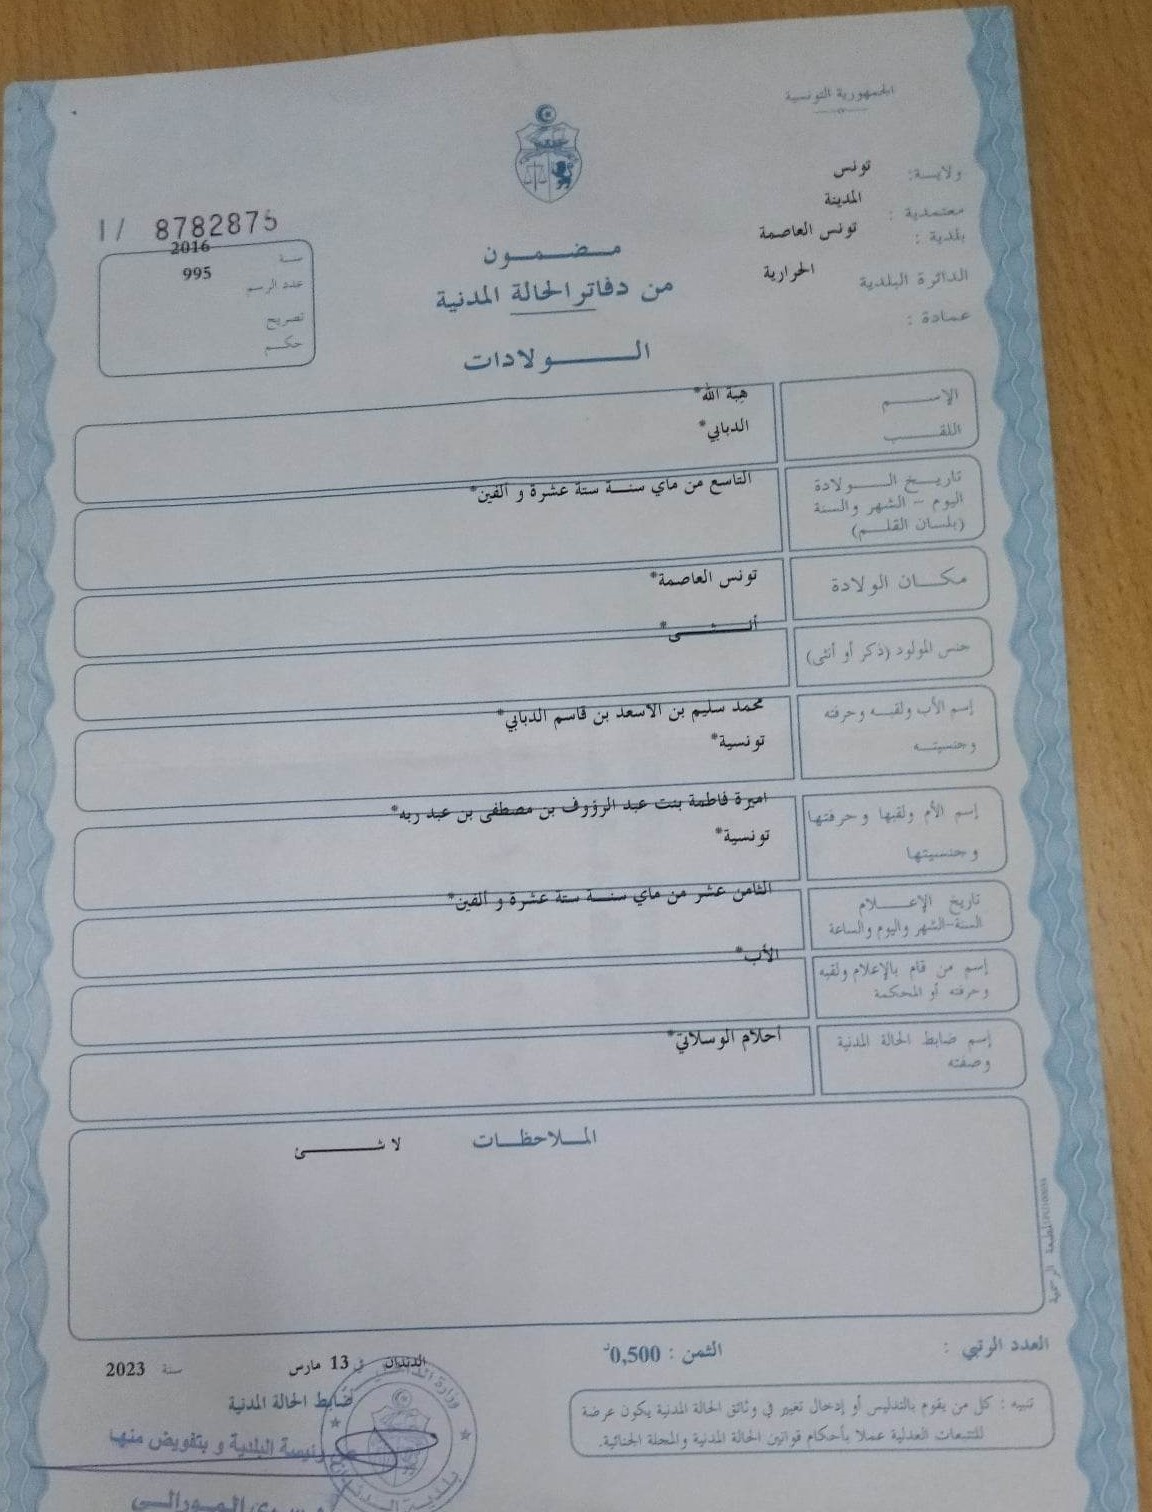 الجمهورية التونسية
ولايـــة: تونس
معتمدية : المدينة
بلدية : تونس العاصمة
الدائرة البلدية الحرارية
عمادة :
I / 8782875
سنة 2016
عدد الرسم 995
تصريح
حكـــم
مـــضـــمـــون
من دفاتر الحالة المدنية
الـــــولادات
الإســـــم هبة الله*
اللقـــــب الدبابي*
تاريـــخ الـــــولادة التاسع من ماي سنـــة ستة عشرة و ألفين*
اليوم – الشهر والسنة
(بلسان القلـــم)
مكـــان الولادة تونس العاصمة*
جنس المولود (ذكر أو أنثى) أنـــثـــى*
إسم الأب ولقبـــه وحرفته محمد سليم بن الاسعد بن قاسم الدبابي*
وجنسيتـــه تونسية*
إسم الأم ولقبها وحرفتها اميرة فاطمة بنت عبد الرؤوف بن مصطفى بن عبد ربه*
وجنسيتها تونسية*
تاريخ الإعـــــلام الثامن عشر من ماي سنـــة ستة عشرة و ألفين*
السنة-الشهر واليوم والساعة
إسم من قام بالإعلام ولقبه الأب*
وحرفته أو المحكمة
إسم ضابط الحالة المدنية أحلام الوسلاتي*
وصفته
المـــلاحظـــات
لا شـــــئ
المطبعة الرسمية
العدد الرتبي :
الثمن : 0,500د
الدندان في 13 مارس سنة 2023
ضابط الحالة المدنية
عن رئيسة البلدية و بتفويض منها
المورالـــي
وزارة الداخلية
بلدية الدندان
تنبيه : كل من يقوم بالتدليس أو إدخال تغيير في وثائق الحالة المدنية يكون عرضة
للتتبعات العدلية عملا بأحكام قوانين الحالة المدنية والمجلة الجنائية.